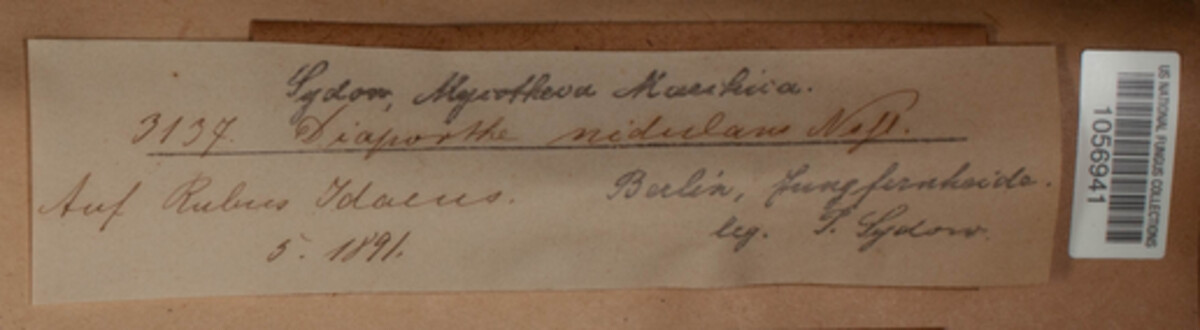 Sydow, Mycotheca Marchica.
3137. Diaporthe nidulans Nssl.
Auf Rubus Idaeus. Berlin, Jungfernheide.
5. 1891. leg. P. Sydow.
US NATIONAL FUNGUS COLLECTIONS
1056941